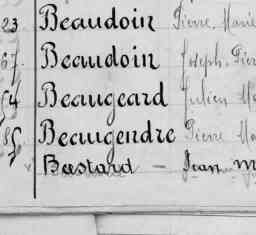 23 Beaudoin Pierre Marie
67 Beaudoin Joseph Pier
54 Beaugeard Julien Ma
Beaugendre Pierre Ma
Bastard – Jean M